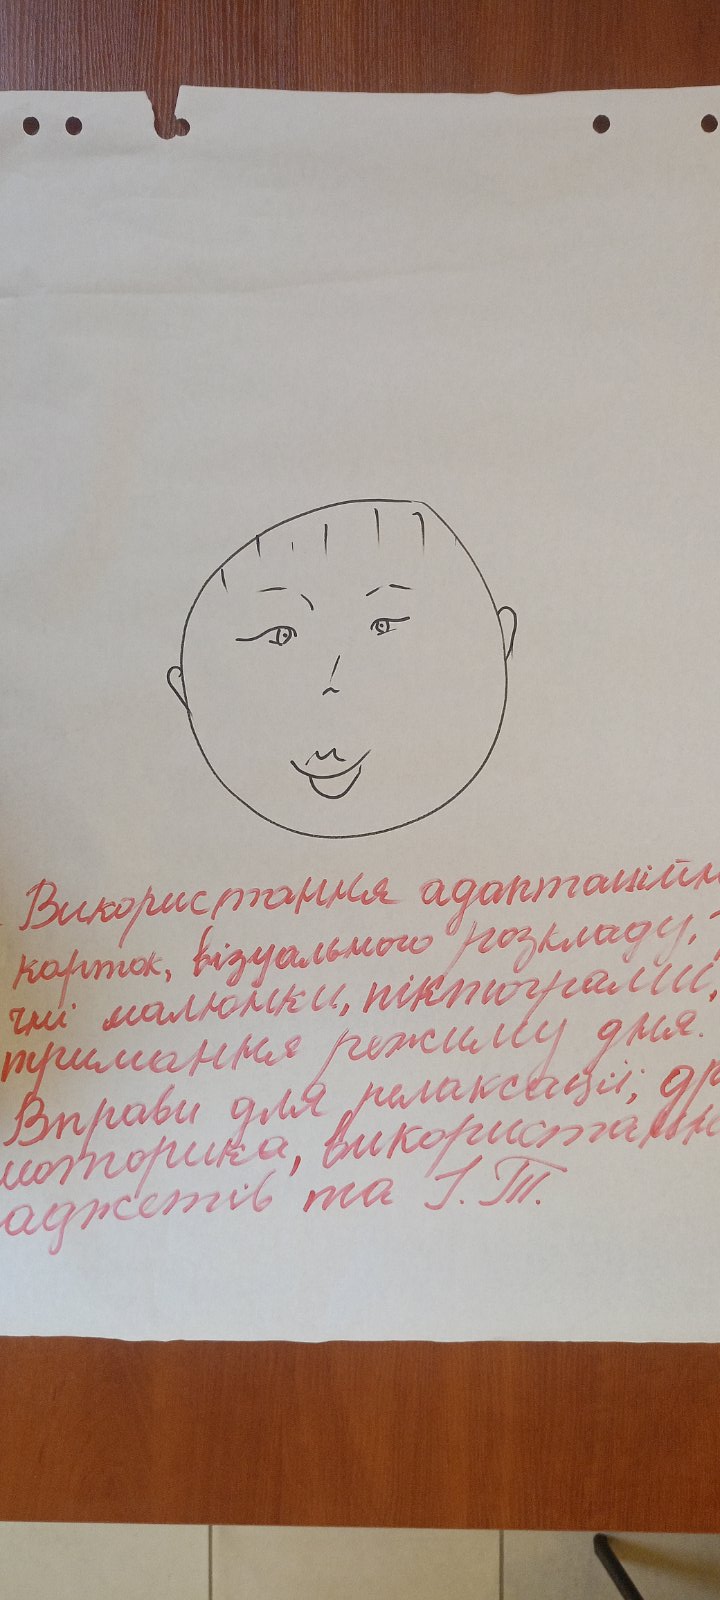 Використання адаптаційн
карток, візуального розкладу,
чні малюнки, піктограми,
тримання режиму дня.
Вправи для релаксації, др
моторика, використанн
аджетів та І.Т.